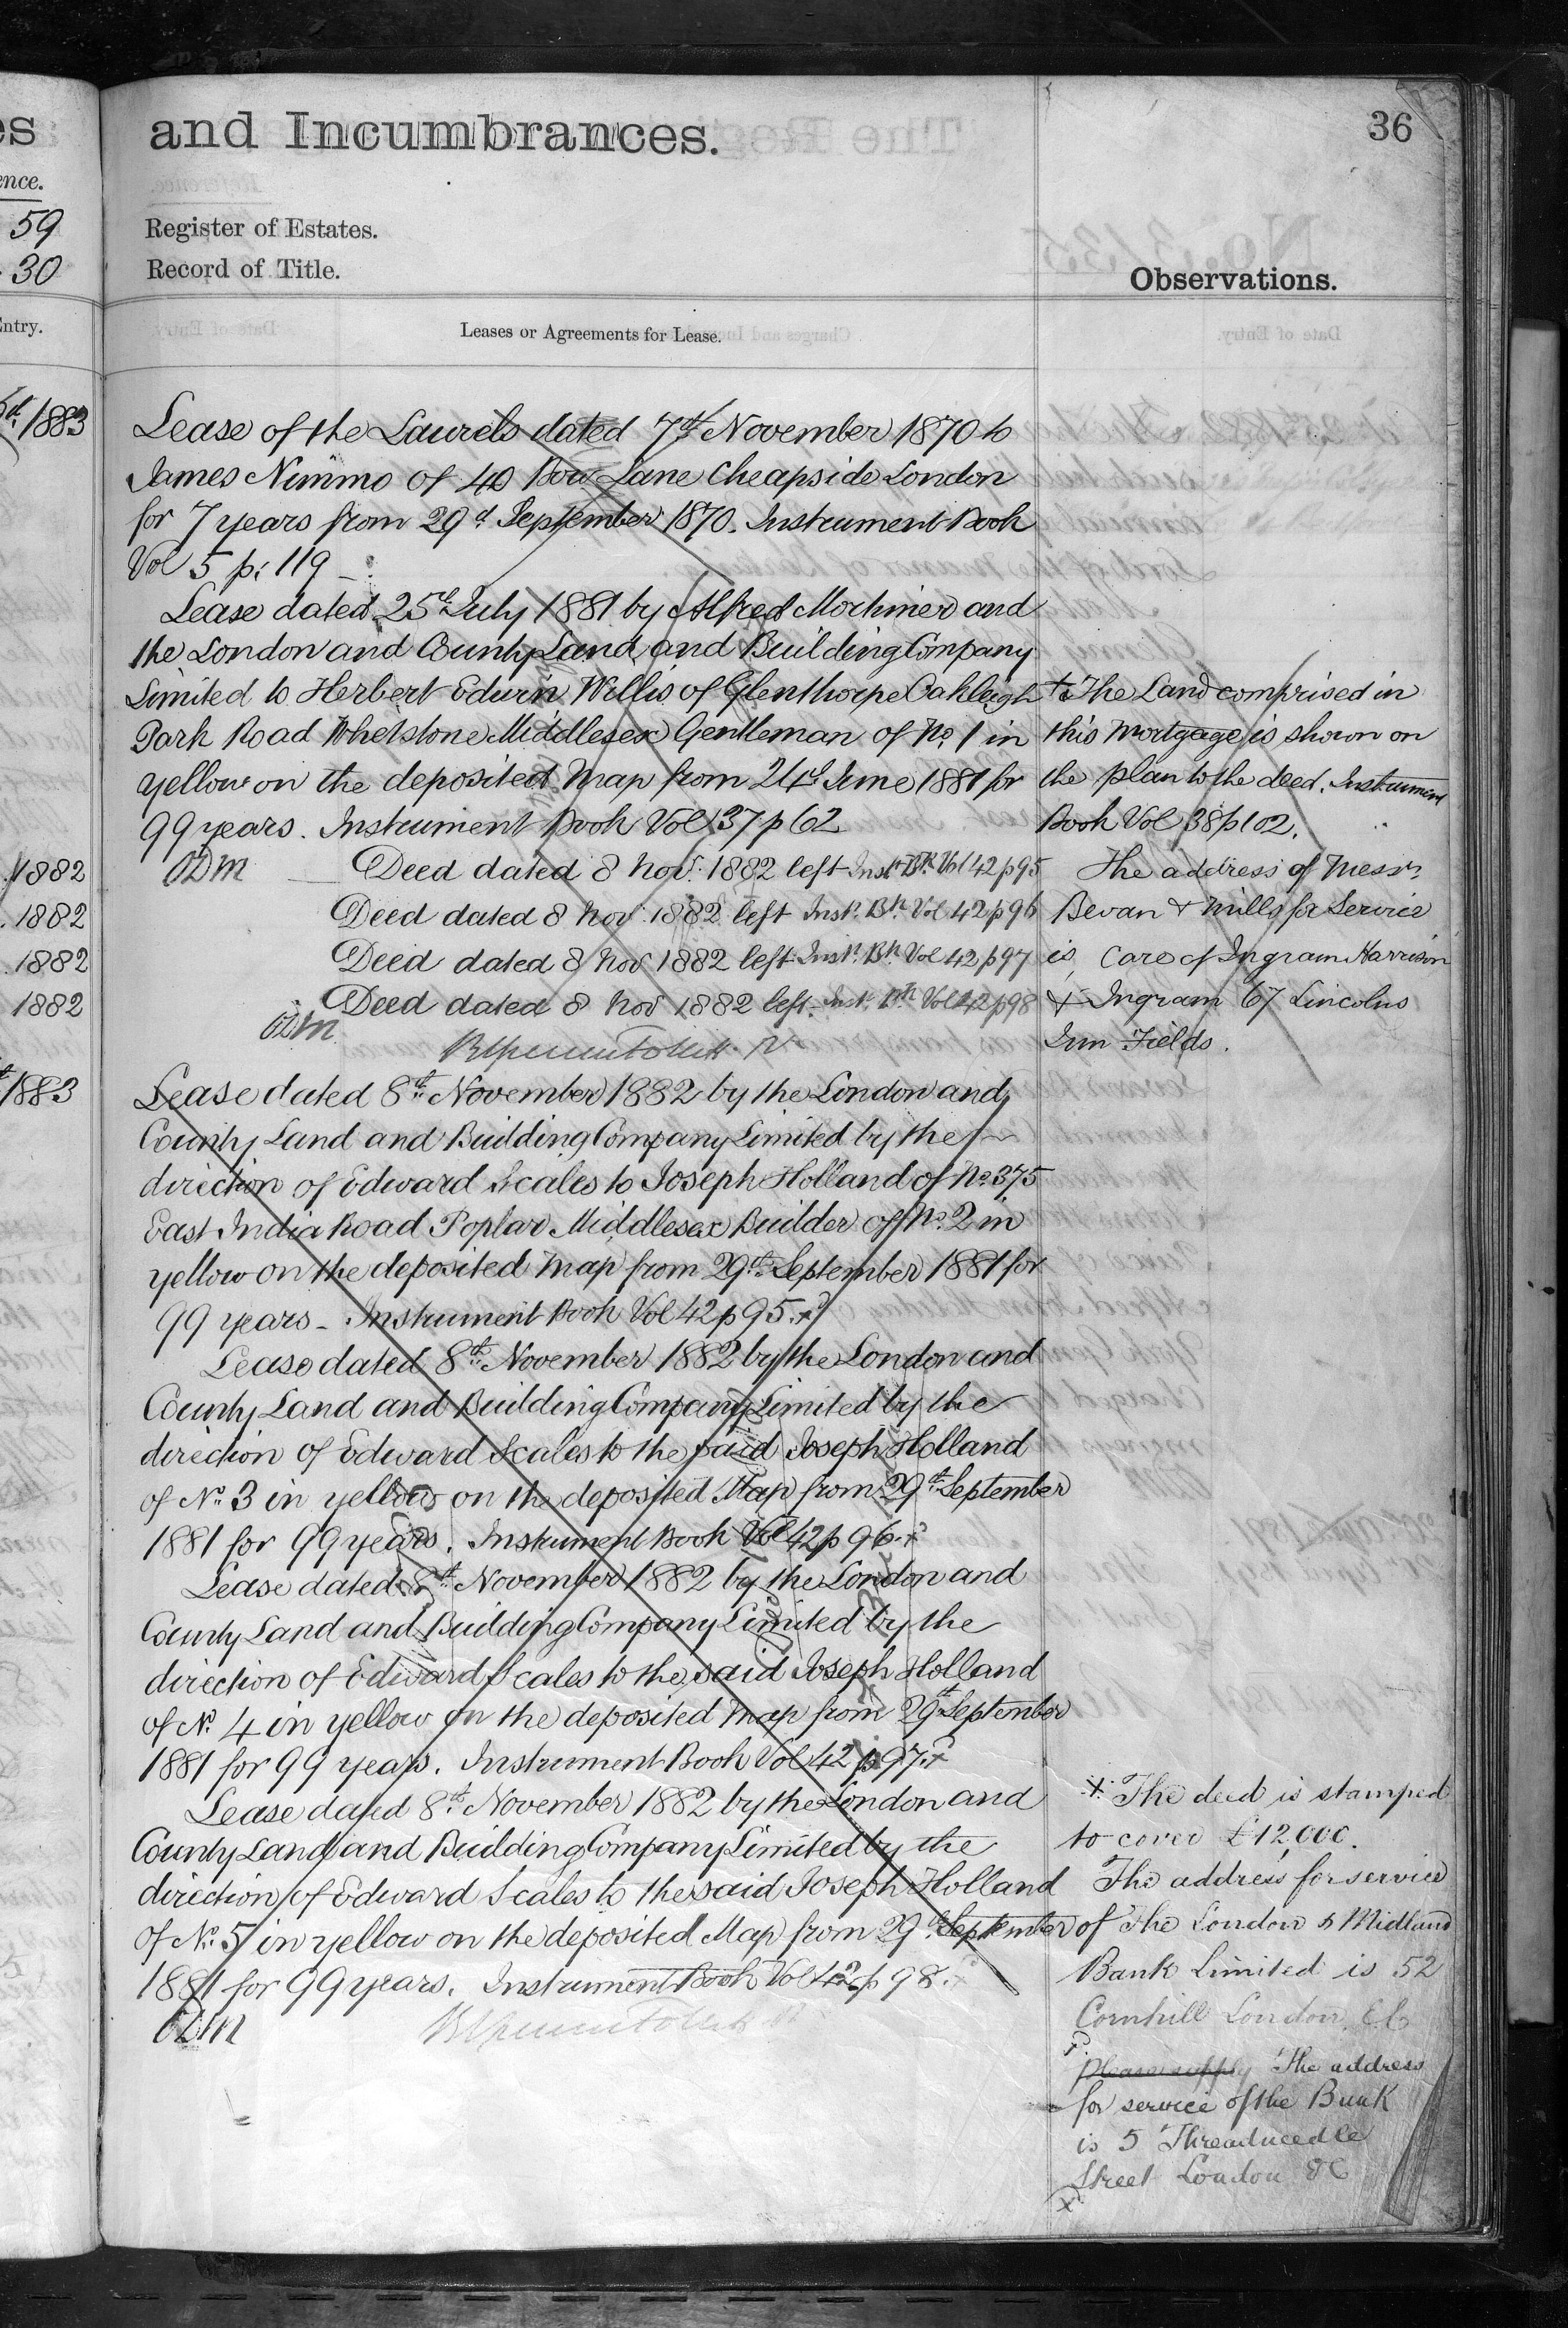 es
ence.
59
30
Entry.
1883
1882
1882
1882
1882
1883
36
and Incumbrances.
Register of Estates.
Record of Title.
Observations.
Leases or Agreements for Lease.
Lease of the Laurels dated 7th November 1870 to
James Nimmo of 40 Bow Lane Cheapside London
for 7 years from 29th September 1870. Instrument Book
Vol 5 p: 119
Lease dated 25th July 1881 by Alfred Mortimer and
the London and County Land and Building Company
Limited to Herbert Edwin Willis of Glenthorpe Oakleigh
Park Road Whetstone Middlesex Gentleman of No. 1 in
yellow on the deposited Map from 24th June 1881 for
99 years. Instrument Book Vol 37 p 62
ODM Deed dated 8 Nov. 1882 left Inst. Bk. Vol 42 p 95
Deed dated 8 Nov. 1882 left Inst. Bk. Vol 42 p 96
Deed dated 8 Nov 1882 left Inst. Bk. Vol 42 p 97
Deed dated 8 Nov 1882 left Inst. Bk Vol 42 p 98
ODM
Lease dated 8th November 1882 by the London and
County Land and Building Company Limited by the
direction of Edward Scales to Joseph Holland of No. 375
East India Road Poplar Middlesex Builder of No. 2 in
yellow on the deposited Map from 29th September 1881 for
99 years - Instrument Book Vol 42 p 95.
Lease dated 8th November 1882 by the London and
County Land and Building Company Limited by the
direction of Edward Scales to the said Joseph Holland
of No. 3 in yellow on the deposited Map from 29th September
1881 for 99 years. Instrument Book Vol 42 p 96.
Lease dated 8th November 1882 by the London and
County Land and Building Company Limited by the
direction of Edward Scales to the said Joseph Holland
of No. 4 in yellow on the deposited Map from 29th September
1881 for 99 years. Instrument Book Vol 42 p 97.
Lease dated 8th November 1882 by the London and
County Land and Building Company Limited by the
direction of Edward Scales to the said Joseph Holland
of No. 5 in yellow on the deposited Map from 29th September
1881 for 99 years. Instrument Book Vol 42 p 98.
ODM
+ The Land comprised in
this Mortgage is shown on
the plan to the deed. Instrument
Book Vol 38 p 102.
The address of Messrs.
Bevan & Mills for Service
is, Care of Ingram Harrison
& Ingram 67 Lincolns
Inn Fields.
The deed is stamped
to cover £12,000.
The address for service
of The London & Midland
Bank Limited is 52
Cornhill London, E.C
Please supply The address
for service of the Bank
is 5 Threadneedle
Street London EC